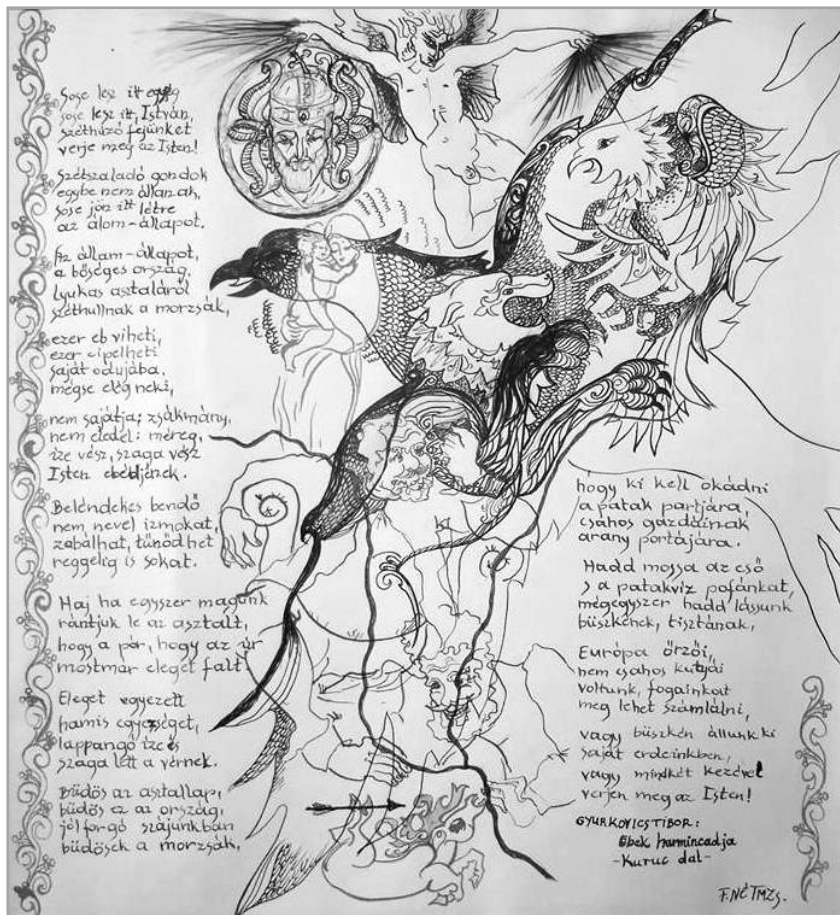 Sose lesz itt egység
sose lesz itt, István,
széthúzó fejünket
verje meg az Isten!
Szétszaladó gondok
egybe nem állanak,
sose jön itt létre
az álom-állapot.
Az állam-állapot,
a bőséges ország,
lyukas asztaláról
széthullnak a morzsák,
ezer eb viheti,
ezer cipelheti
saját odujába.
mégse elég neki,
nem sajátja; zsákmány,
nem eledel: méreg,
íze vész, szaga vész
Isten ebédjének.
Beléndekes bendő
nem nevel izmokat,
zabálhat, tűnődhet
reggelig is sokat.
Haj ha egyszer magunk
rántjuk le az asztalt,
hogy a pór, hogy az úr
mostmár eleget falt!
Eleget egyezett
hamis egyezséget,
lappangó íze és
szaga lett a vérnek.
Büdös az asztallap,
büdös ez az ország,
jól forgó szájunkban
büdösek a morzsák,
hogy ki kell okádni
a patak partjára,
csahos gazdáinak
arany portájára.
Hadd mossa az eső
s a patakvíz pofánkat,
mégegyszer hadd lássunk
büszkének, tisztának,
Európa őrzői,
nem csahos kutyái
voltunk, fogainkat
meg lehet számlálni,
vagy büszkén állunk ki
saját erdeinkben,
vagy mindkét kezével
verjen meg az Isten!
GYURKOVICS TIBOR:
Ebek harmincadja
-Kuruc dal-